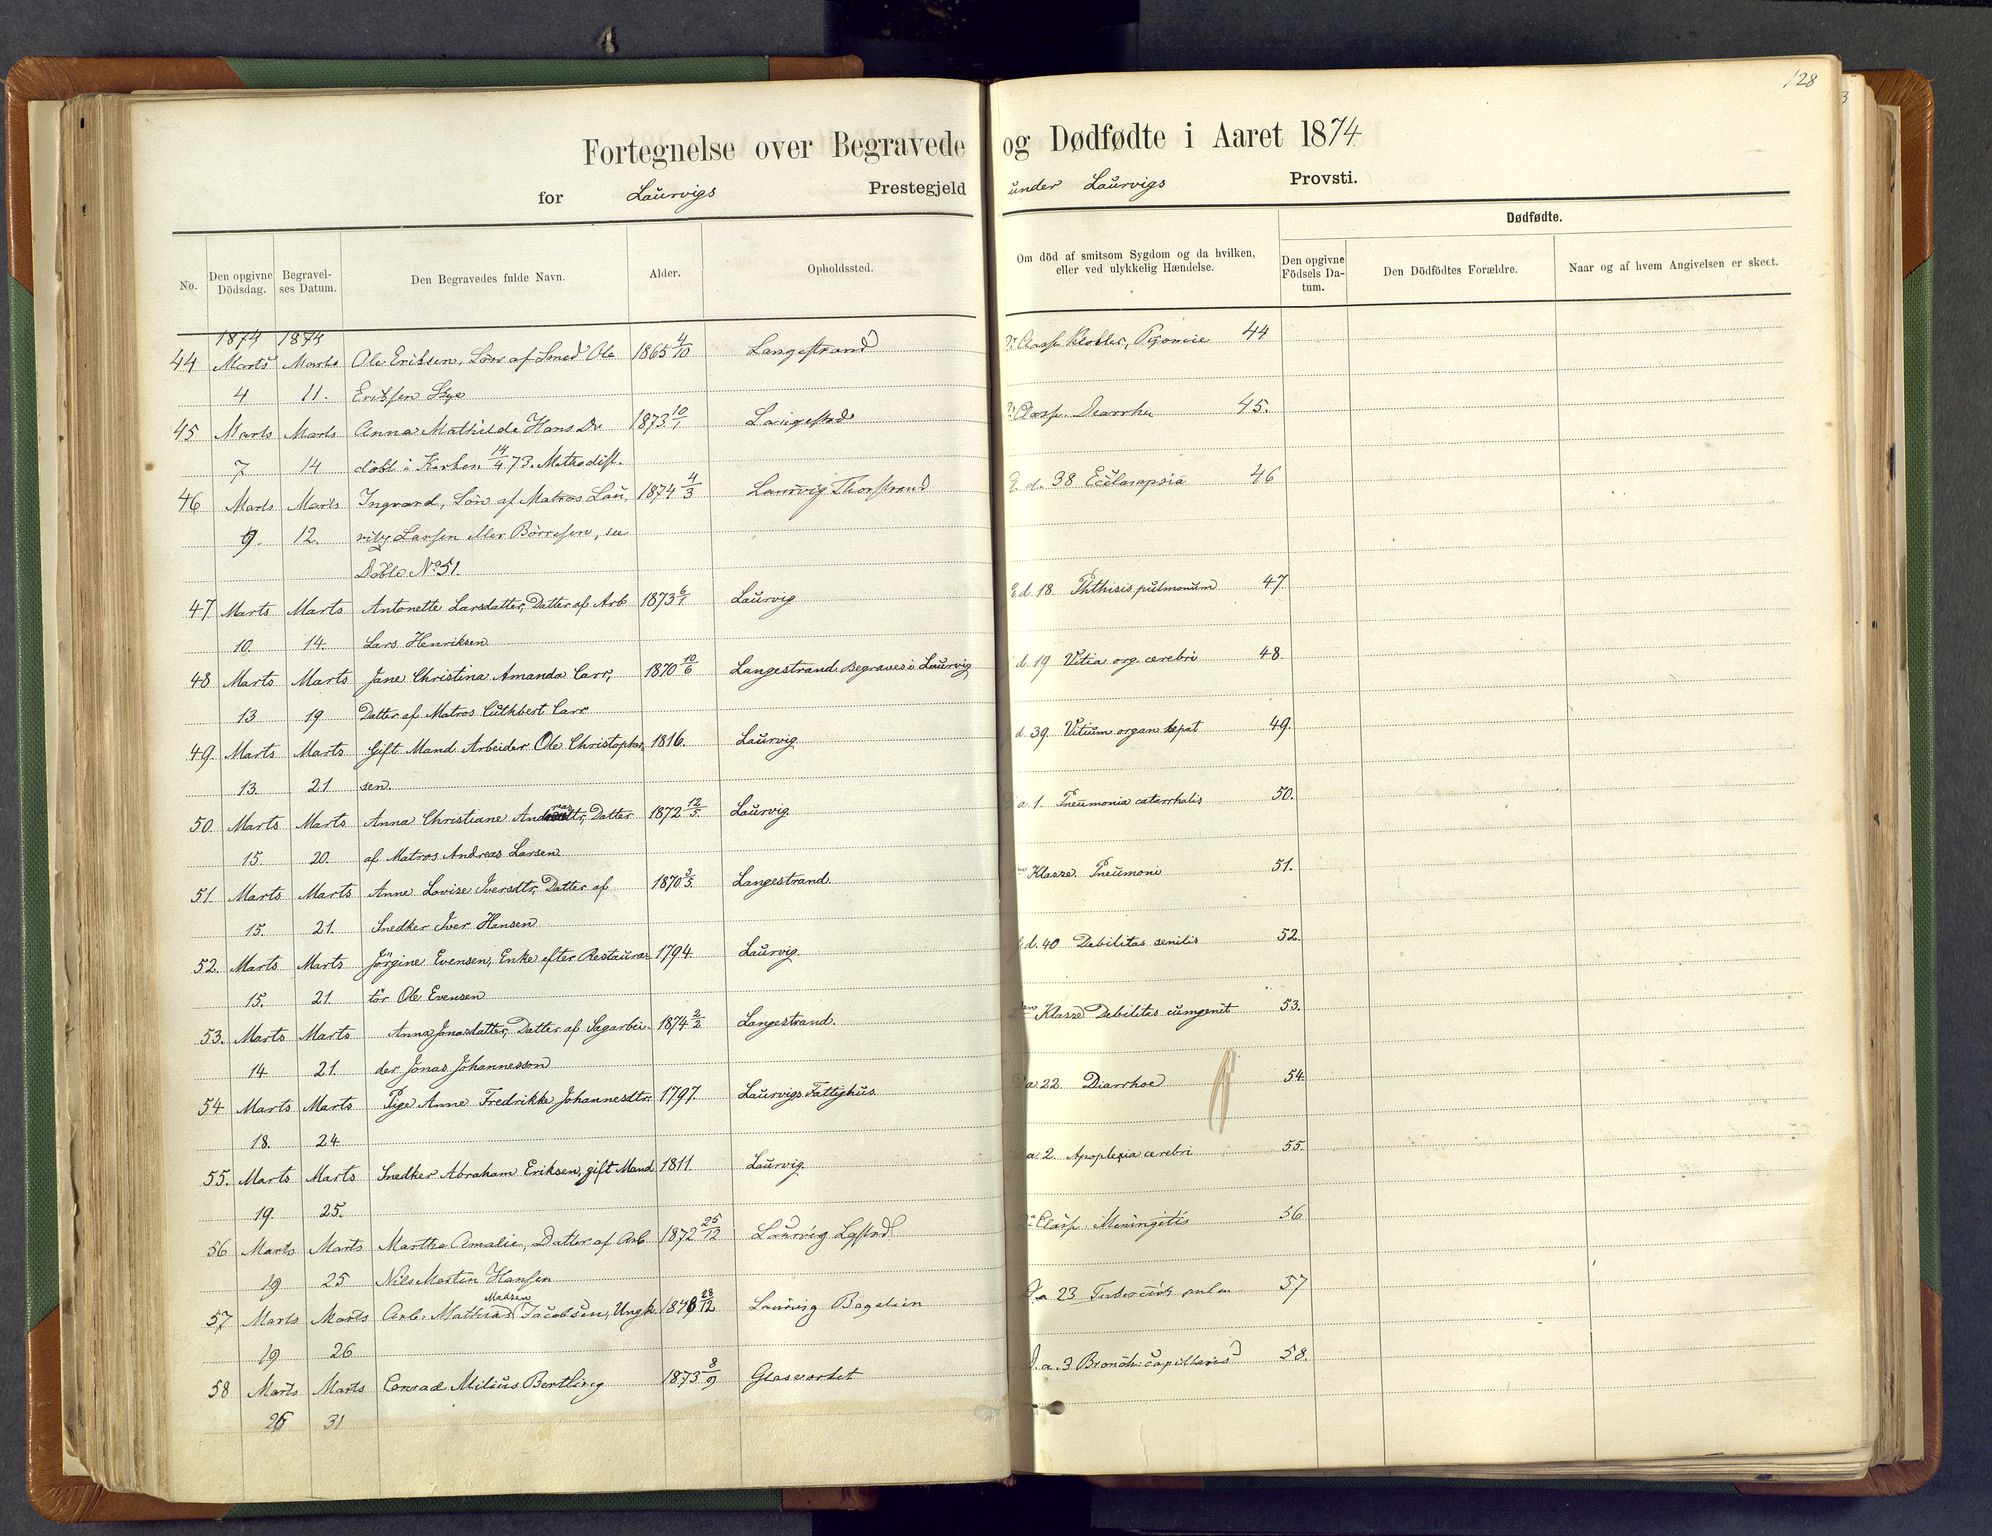 128
Fortegnelse over Begravede og Dødfødte i Aaret 1874
for Laurvigs Prestegjeld under Laurvigs Provsti.
Dødfødte.
No. Den opgivne Dödsdag. Begravelses Datum. Den Begravedes fulde Navn. Alder. Opholdssted. Om död af smitsom Sygdom og da hvilken, eller ved ulykkelig Hændelse. Den opgivne Födsels Datum. Den Dödfödtes Forældre. Naar og af hvem Angivelsen er skeet.
1874 1874
44 Marts Marts Ole Eriksen, Søn af Smed Ole 1865 4/10 Langestrand Pyæmie 44
4 11. Eriksen Skye
45 Marts Marts Anna Mathilde Hans Dr 1873 10/1 Langestad Diarrhe 45.
7 14 døbt i Kirken 14/4 73. Methodist.
46 Marts Marts Ingvard, Søn af Matros Lau, 1874 4/3 Laurvig Thorstrand d. 38 Eclampsia 46
9. 12. ritz Larsen eller Börresen, see
Döbte No 51.
47 Marts Marts Antonette Larsdatter, Datter af Arb 1873 6/1 Laurvig d. 18 Phthisis pulmonum 47
10. 14. Lars Henriksen
48 Marts Marts Jane Christina Amanda Carr, 1870 10/6 Langestrand. Begraves i Laurvig d. 19 Vitia org. cerebri 48.
13 19 Datter af Matros Cuthbert Carr
49. Marts Marts Gift Mand Arbeider Ole Christopher 1816. Laurvig. d. 39. Vitium organ hepat 49.
13. 21 sen.
50. Marts Marts Anna Christiane Andreasdtr, Datter 1872 12/5. Laurvig. a 1. Pneumonia catarrhalis 50.
15. 20. af Matros Andreas Larsen
51 Marts Marts Anne Lovise Iversdtr, Datter af 1870 3/5. Langestrand. Klasse Pneumoni 51.
15. 21. Snedker Iver Hansen
52. Marts Marts Jörgine Evensen, Enke efter Restaura= 1794. Laurvig. d. 40 Debilitas senilis 52.
15. 21. tör Ole Evensen
53. Marts Marts Anna Jonasdatter, Datter af Sagarbei- 1874 2/2 Langestrand. Klasse Debilitas cumgenit 53.
14 21. der Jonas Johannesson
54 Marts Marts Pige Anne Fredrikke Johannesdtr. 1797. Laurvigs Fattighus. a 22 Diarrhoe 54.
18. 24
55. Marts Marts Snedker Abraham Eriksen, gift Mand 1811. Laurvig. a. 2. Apoplexia cerebri 55.
19. 25.
56 Marts Marts Martha Amalie, Datter af Arb 1872 25/12 Laurvig Meningitis 56
19 25 Nils Martin Hansen
Madsen
57 Marts Marts Arb: Mathias Jacobsen, Ungk 28/12 Laurvig a 23 57
19 26
58 Marts Marts Conrad Milius Bertling 1873 8/9 Glasverket a. 3 Bronch: capillaris 58.
31